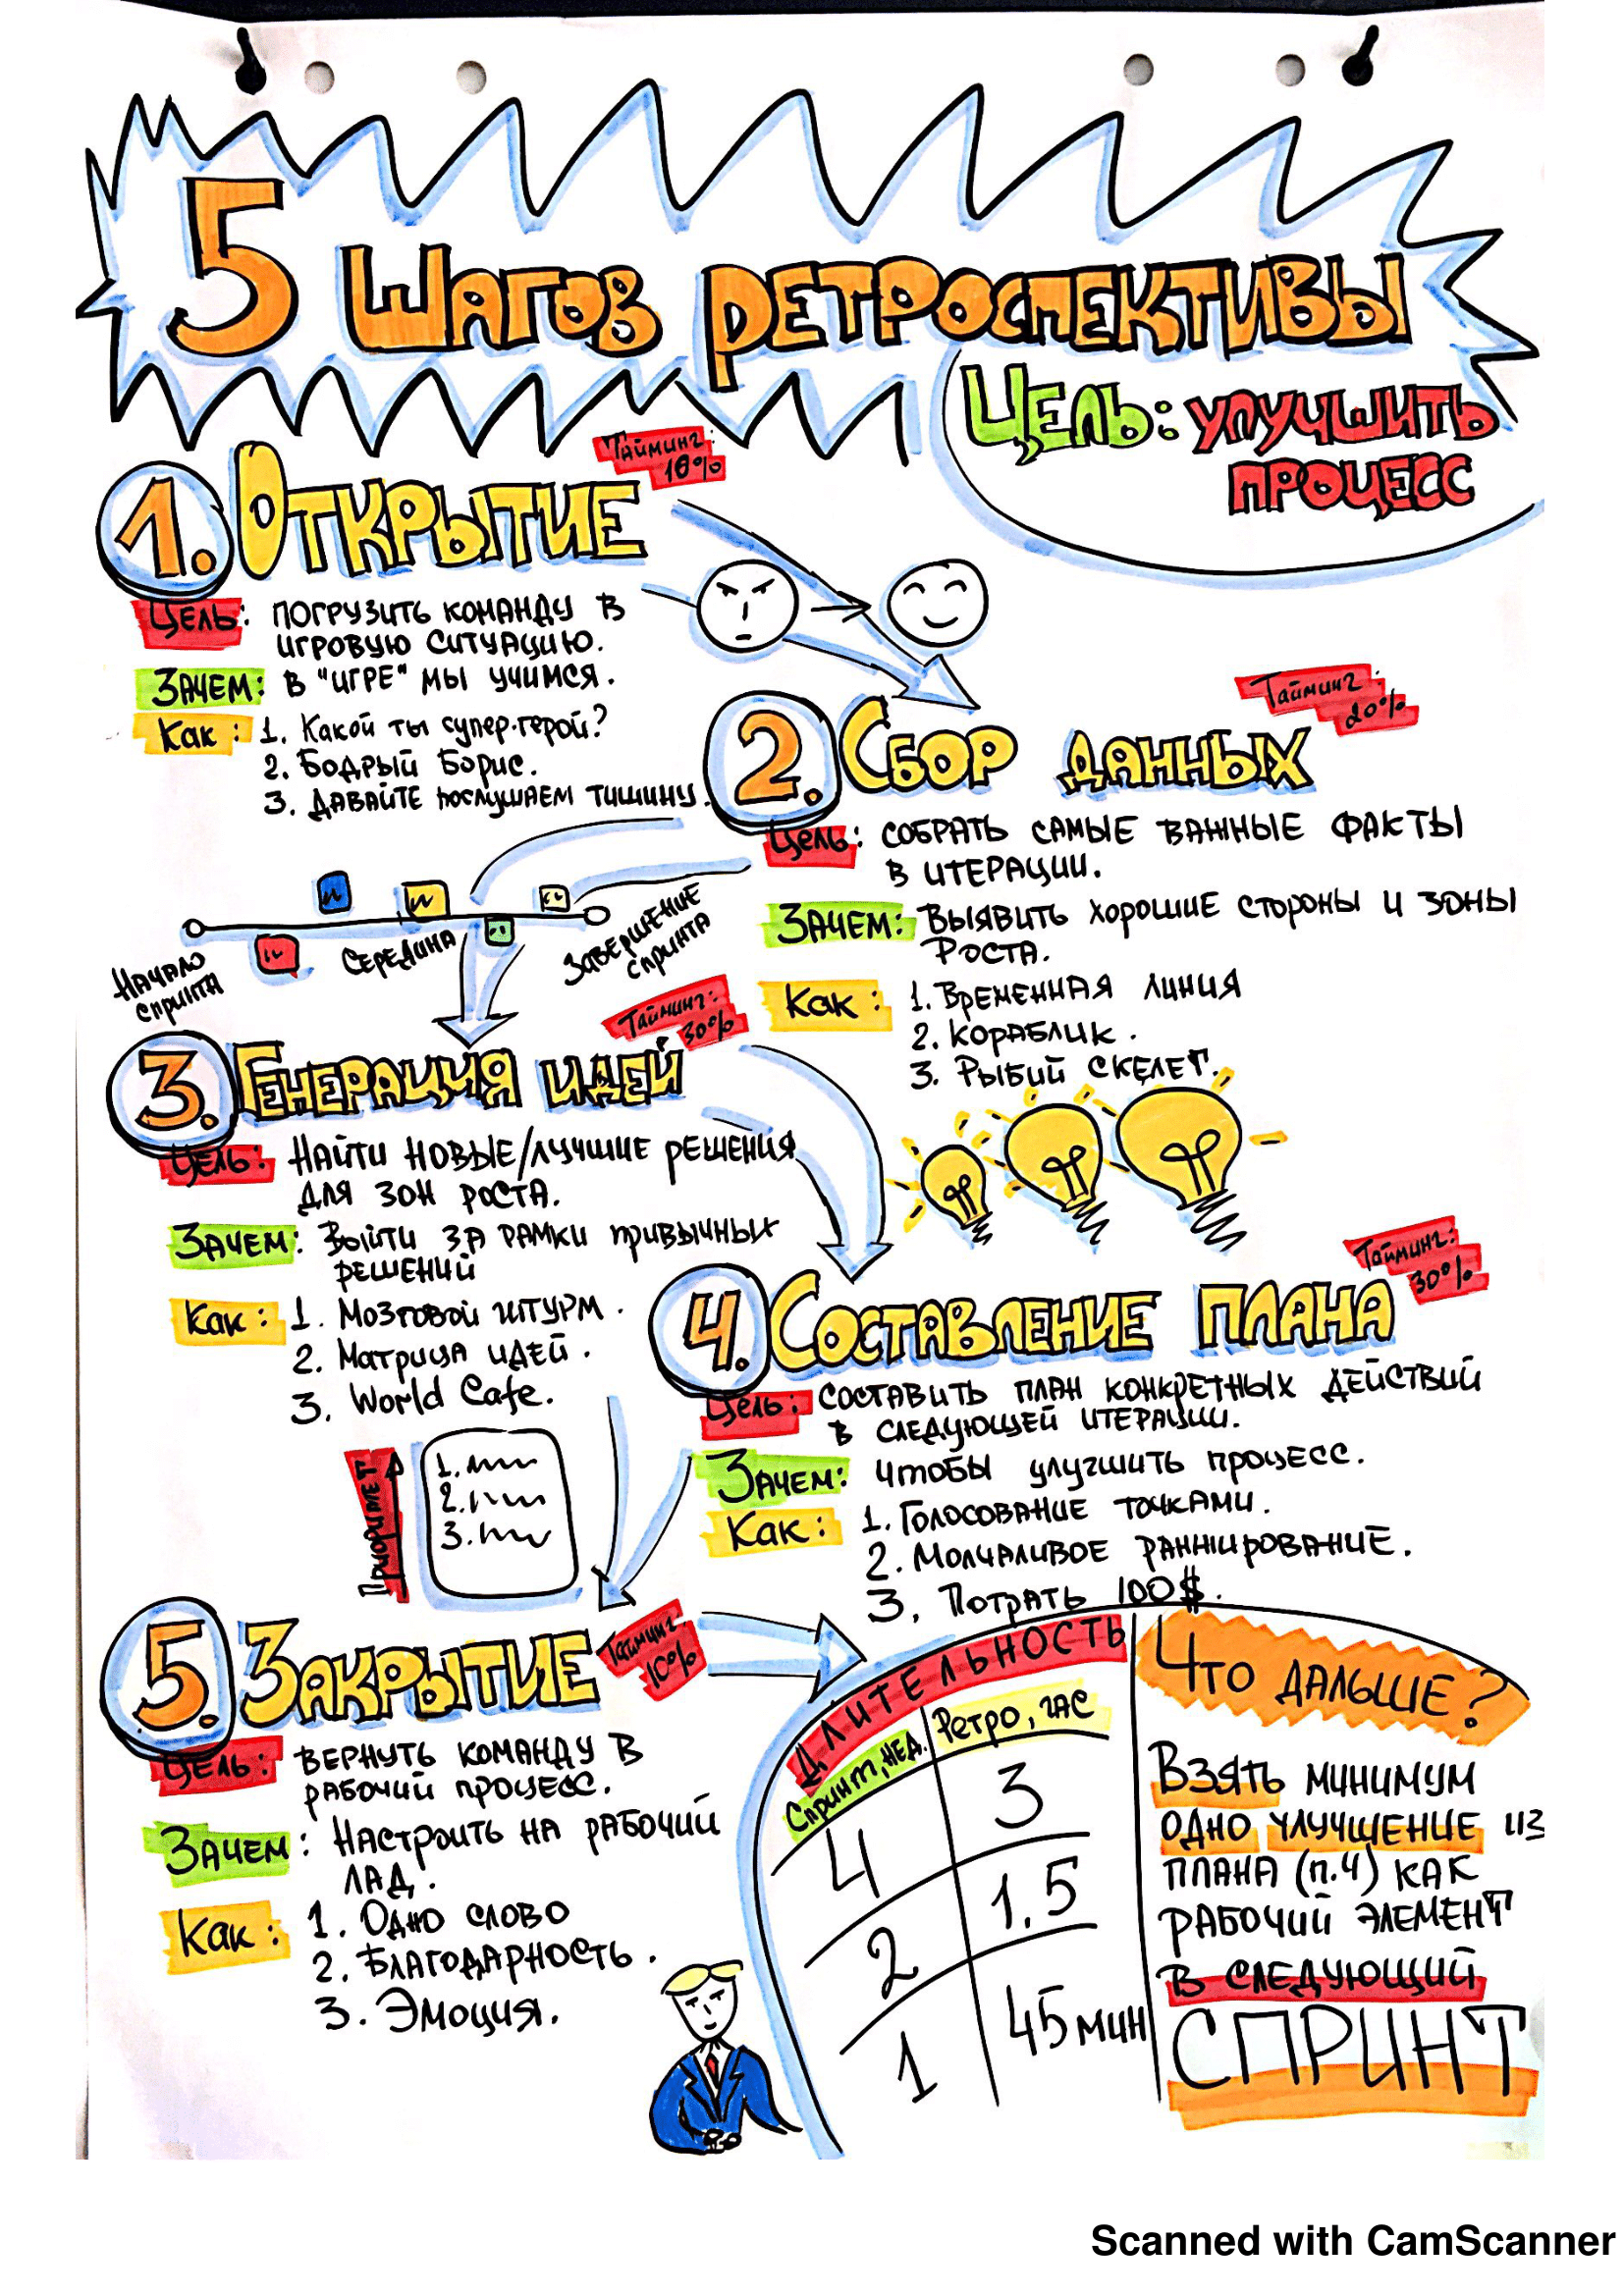 5 ШАГОВ РЕТРОСПЕКТИВЫ
ЦЕЛЬ: УЛУЧШИТЬ
ПРОЦЕСС
Тайминг:
10%
1. ОТКРЫТИЕ
ЦЕЛЬ: ПОГРУЗИТЬ КОМАНДУ В
ИГРОВУЮ СИТУАЦИЮ.
ЗАЧЕМ: В "ИГРЕ" МЫ УЧИМСЯ.
Как: 1. Какой ты супер-герой?
2. Бодрый Борис.
3. ДАВАЙТЕ ПОСЛУШАЕМ ТИШИНУ.
Тайминг:
20%
2. СБОР ДАННЫХ
ЦЕЛЬ: СОБРАТЬ САМЫЕ ВАЖНЫЕ ФАКТЫ
В ИТЕРАЦИИ.
ЗАЧЕМ: ВЫЯВИТЬ ХОРОШИЕ СТОРОНЫ И ЗОНЫ
РОСТА.
Как: 1. ВРЕМЕННАЯ ЛИНИЯ
2. КОРАБЛИК.
3. РЫБИЙ СКЕЛЕТ.
НАЧАЛО
СПРИНТА
СЕРЕДИНА
ЗАВЕРШЕНИЕ
СПРИНТА
Тайминг:
30%
3. ГЕНЕРАЦИЯ ИДЕЙ
ЦЕЛЬ: НАЙТИ НОВЫЕ/ЛУЧШИЕ РЕШЕНИЯ
ДЛЯ ЗОН РОСТА.
ЗАЧЕМ: ВЫЙТИ ЗА РАМКИ ПРИВЫЧНЫХ
РЕШЕНИЙ
Как: 1. МОЗГОВОЙ ШТУРМ.
2. МАТРИЦА ИДЕЙ.
3. World Cafe.
Тайминг:
30%
4. СОСТАВЛЕНИЕ ПЛАНА
ЦЕЛЬ: СОСТАВИТЬ ПЛАН КОНКРЕТНЫХ ДЕЙСТВИЙ
В СЛЕДУЮЩЕЙ ИТЕРАЦИИ.
ЗАЧЕМ: ЧТОБЫ УЛУЧШИТЬ ПРОЦЕСС.
Как: 1. ГОЛОСОВАНИЕ ТОЧКАМИ.
2. МОЛЧАЛИВОЕ РАНЖИРОВАНИЕ.
3. ПОТРАТЬ 100$.
ПРИОРИТЕТ
1.
2.
3.
Тайминг:
10%
5. ЗАКРЫТИЕ
ЦЕЛЬ: ВЕРНУТЬ КОМАНДУ В
РАБОЧИЙ ПРОЦЕСС.
ЗАЧЕМ: НАСТРОИТЬ НА РАБОЧИЙ
ЛАД.
Как: 1. ОДНО СЛОВО
2. БЛАГОДАРНОСТЬ.
3. ЭМОЦИЯ.
ДЛИТЕЛЬНОСТЬ
Спринт, НЕД. Ретро, ЧАС
4 3
2 1,5
1 45 мин
ЧТО ДАЛЬШЕ?
ВЗЯТЬ МИНИМУМ
ОДНО УЛУЧШЕНИЕ ИЗ
ПЛАНА (п.4) КАК
РАБОЧИЙ ЭЛЕМЕНТ
В СЛЕДУЮЩИЙ
СПРИНТ
Scanned with CamScanner